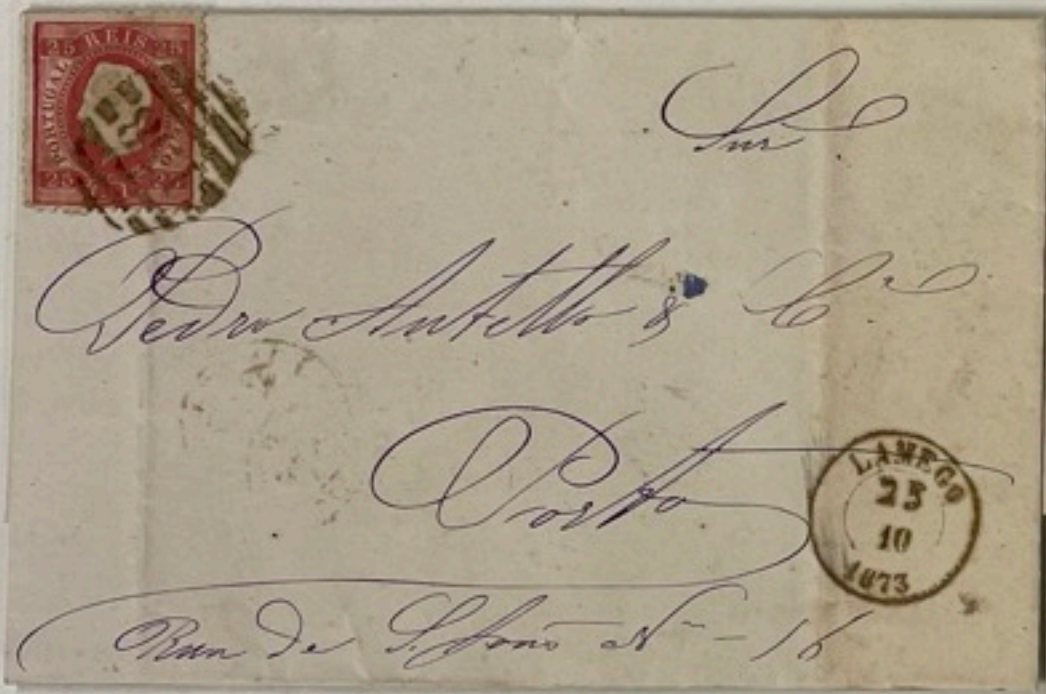 25 REIS 25
PORTUGAL CORREIO
25 25
Snr
Pedro Antello & Cª
Porto
LAMEGO
25
10
1873
Rua de S. João Nº - 16